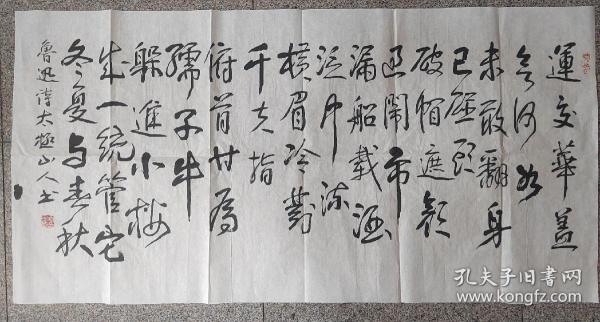 運交華蓋
欲何求
未敢翻身
已碰頭
破帽遮顏
過鬧市
漏船載酒
泛中流
橫眉冷對
千夫指
俯首甘為
孺子牛
躲進小樓
成一統管它
冬夏与春秋
魯迅詩太極山人书
孔夫子旧书网
www.kongfz.com